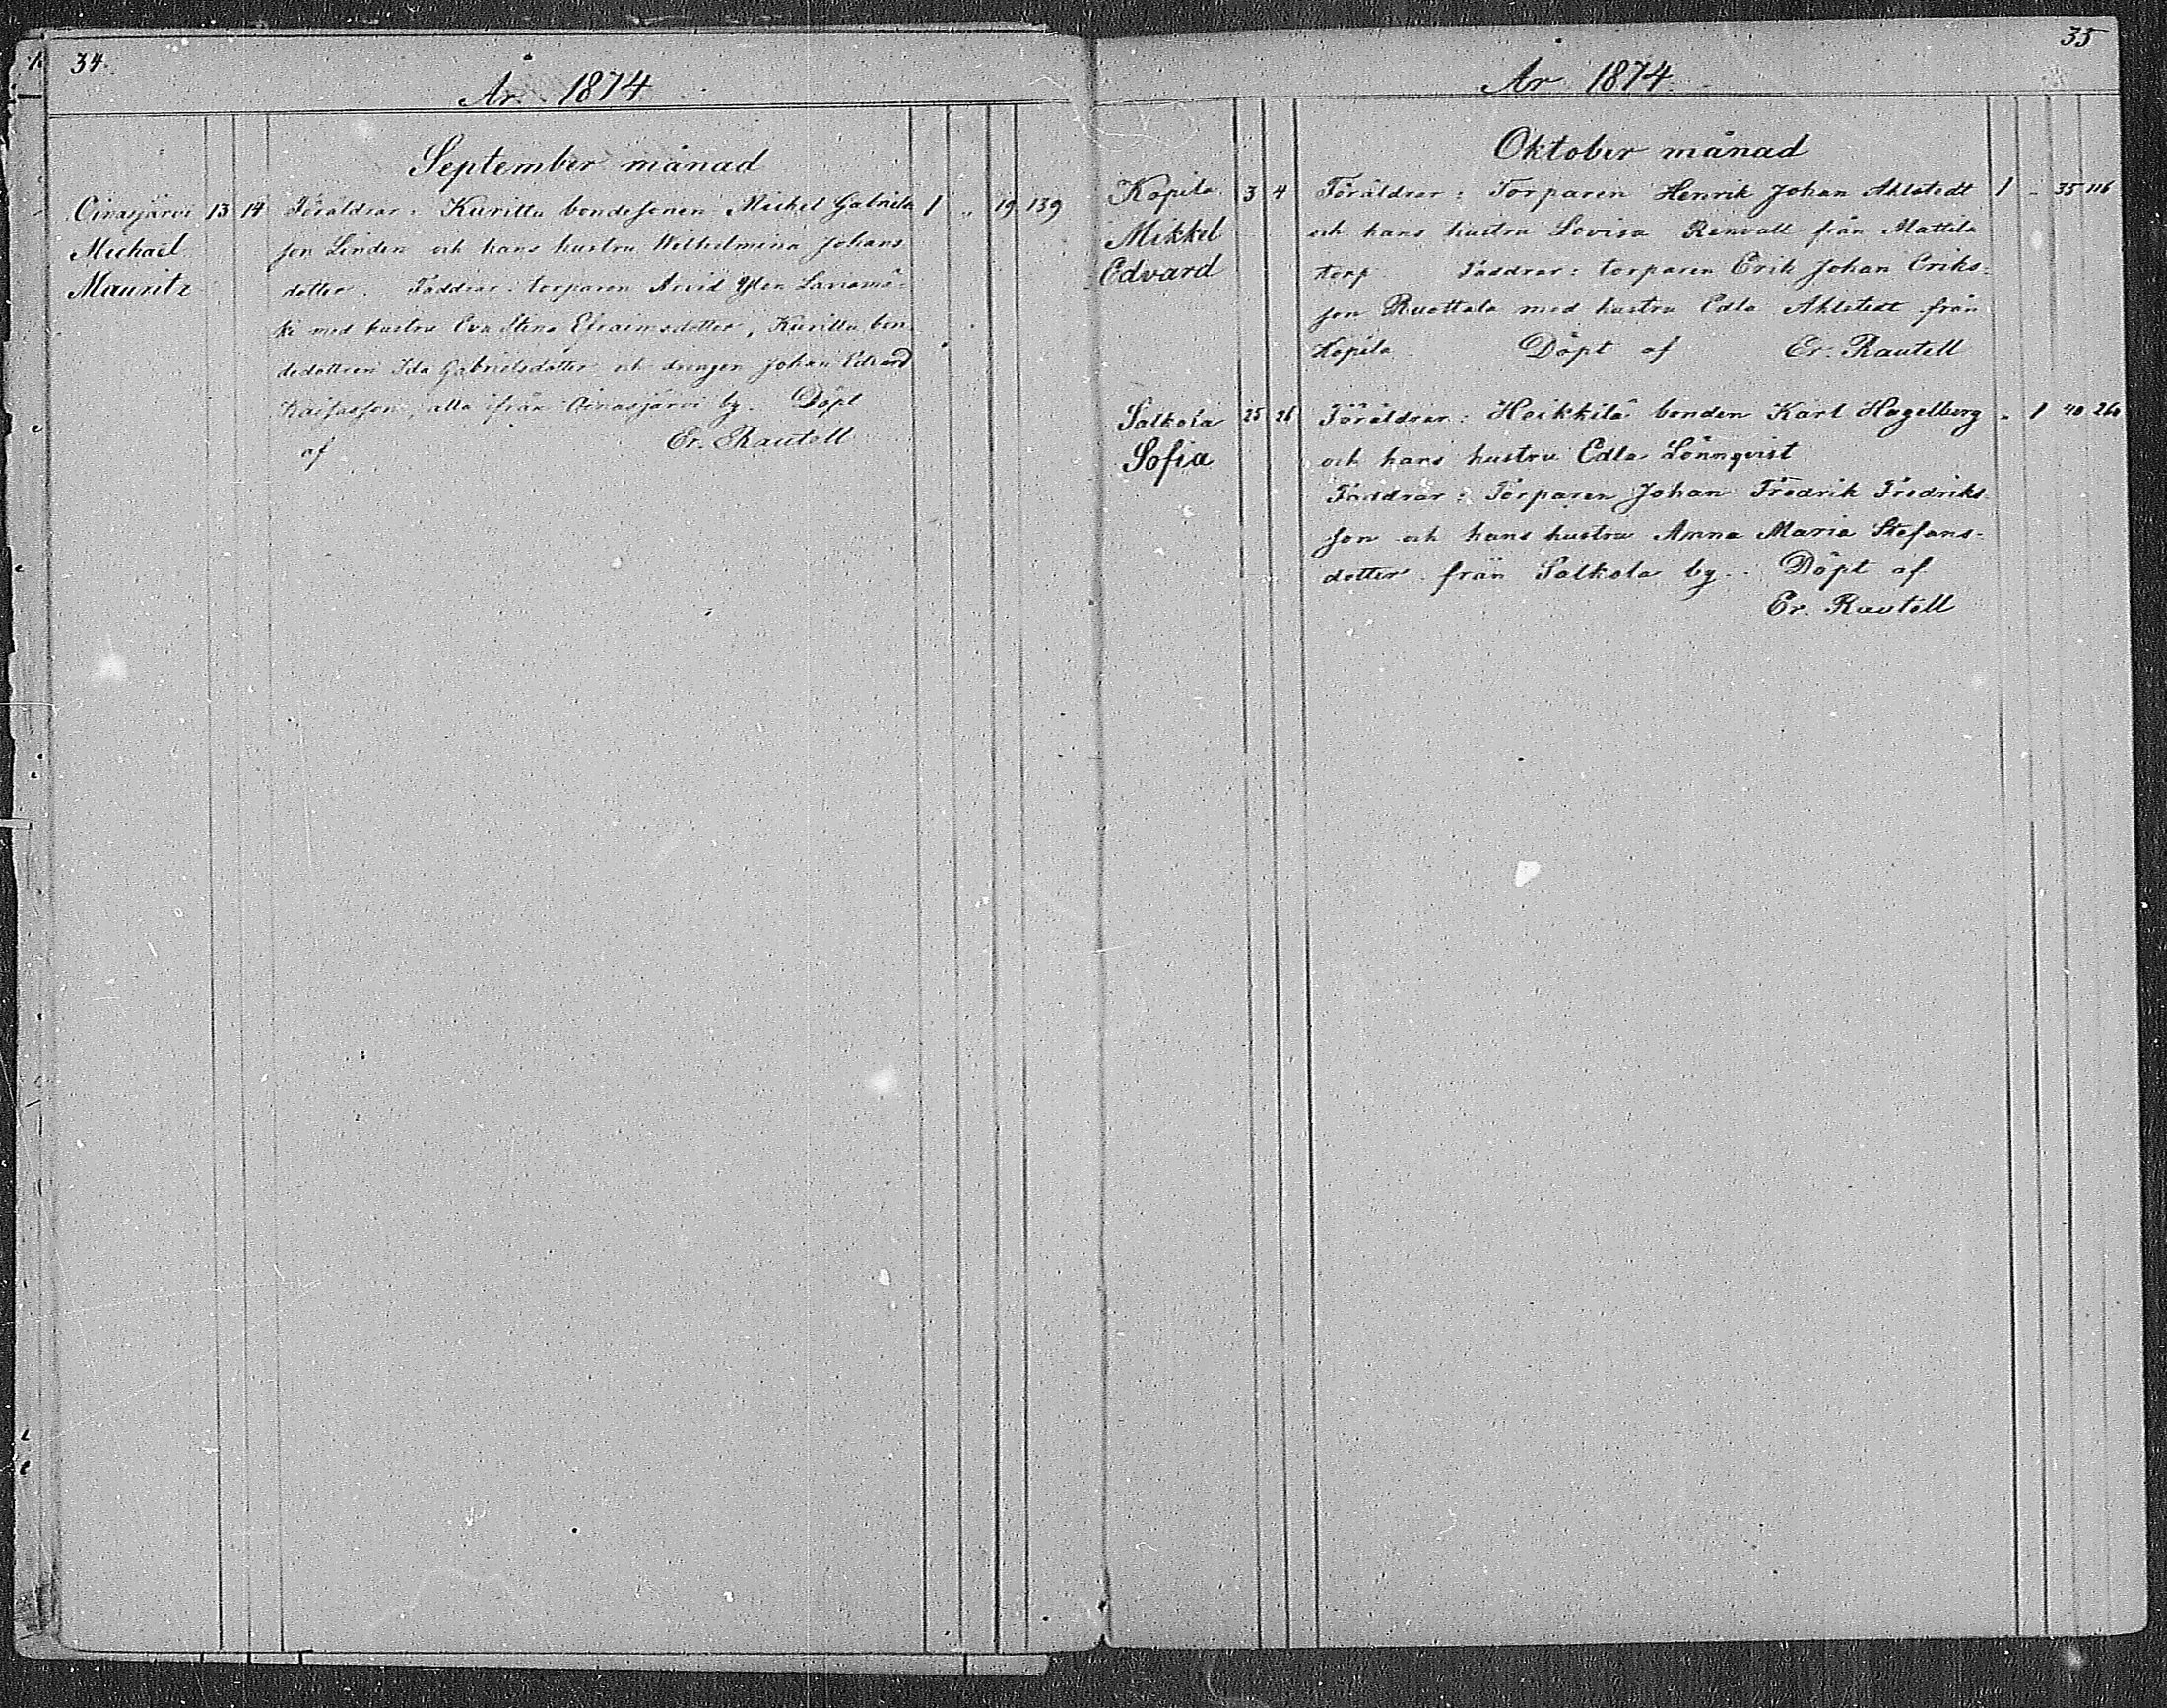 34.
År 1874
September månad
Oinasjärvi 13 14 Föräldrar: Kurittu bondesonen Mickel Gabriels 1 „ 19 139
Michaël son Linden och hans hustru Wilhelmina Johans
Mauritz dotter. Faddrar: torparen Arvid
ki med hustru Eva Stina Efraimsdotter, Kurittu bon-
dedottren Ida Gabrielsdotter och drengen Johan Edvard
Kaifasson, alla ifrån Oinasjärvi by. Döpt
af Er. Rautell
35
År 1874
Oktober månad
Kopila 3 4 Föräldrar: Torparen Henrik Johan Ahlstedt 1 - 35 116
Mikkel och hans hustru Lovisa Renvall från Mattila
Edvard torp. Faddrar: torparen Erik Johan Eriks-
son Ruottala med hustru Edla Ahlstedt från
Kopila. Döpt af Er. Rautell
Salkola 25 26 Föräldrar: Heikkilä bonden Karl Hagelberg „ 1 40 260
Sofia och hans hustru Edla Lönnqvist.
Faddrar: Torparen Johan Fredrik Fredriks-
son och hans hustru Anna Maria Stefans-
dotter från Salkola by. Döpt af
Er. Rautell